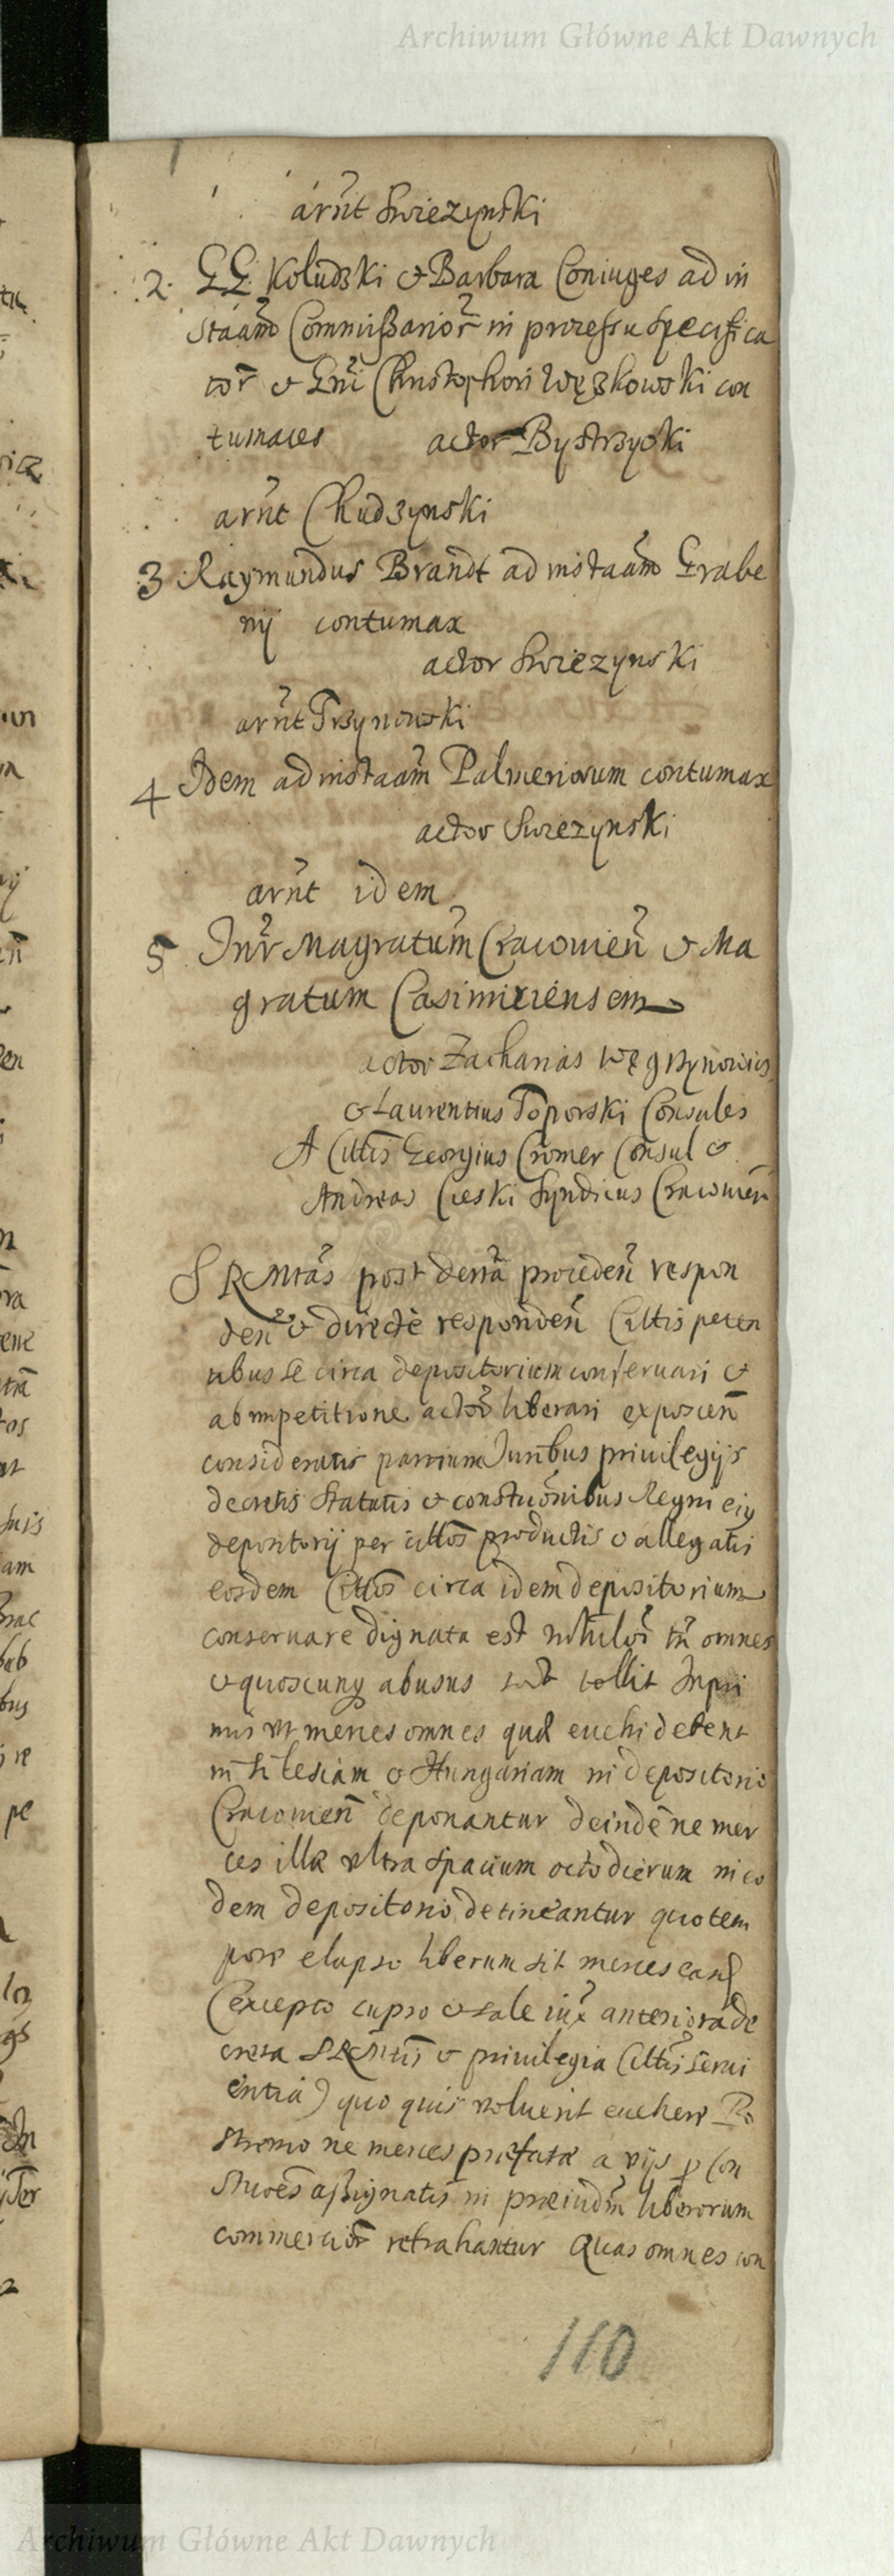 Archiwum Główne Akt Dawnych
arn̄t Swiezynski
2. GG. Koludzki & Barbara Coniuges ad in
staãm Commissarior̃ in processu specifica
tor̃ & Gñi Christophori Węzkowski con
tumaces actor Bystrzycki
arn̄t Chudzynski
3 Raymundus Brandt ad instaãm Grabe
nij contumax
actor Swiezynski
arn̄t Trzynowski
4 Idem ad instaãm Palmeriorum contumax
actor Swiezynski
arn̄t idem
5 Int̃r Magratum Cracovien̄ & Ma
gratum Casimiriensem
actor Zacharias Węgrzynowicz
& Laurentius Toporski Consules
A Cittis Georgius Cromer Consul &
Andreas Cieski Syndicus Cracovien̄
S R Mtãs post dec̃ta proceden̄ respon
den̄ & directè responden̄ Cittis peten
tibus se circa depositorium conseruari &
ab impetitione actor̃ liberari exposcen̄
consideratis partium Juribus priuilegijs
decretis Statutis & constuõnibus Regni eiq
depositorij per cittos productis & allegatis
eosdem Cittos circa idem depositorium
conseruare dignata est nihilõi tñ omnes
& quoscunq abusus tollit Inpri
mis vt merces omnes quæ euehi debent
in Silesiam & Hungariam in depositorio
Cracovien̄ deponantur deindè ne mer
ces illæ vltra spacium octo dierum in eo
dem depositorio detineantur quo tem
pore elapso liberum sit merces easd
(excepto cupro & sale iux̃ anteriora de
creta SRMtis & priuilegia Cittis serui
entia) quo quis voluerit euehere Po
stremo ne merces præfatæ a vijs p con
stuões assignatis in præiudm̃ liberorum
commercior̃ retrahantur Quas omnes con
110
Archiwum Główne Akt Dawnych